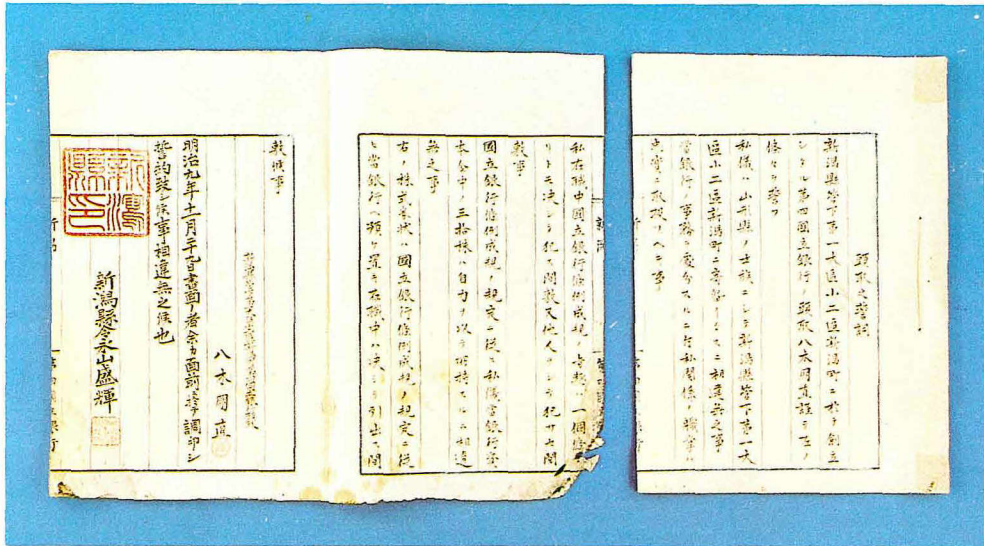 頭取之誓詞
新潟縣管下第一大區小二區新潟町ニ於テ創立
シタル第四國立銀行ノ頭取八木朋直謹テ左ノ
條々ヲ誓フ
私儀ハ山形縣ノ士族ニシテ新潟縣管下第一大
區小二區新潟町ニ寄留シ
ニ相違無之事
當銀行ノ事務ヲ處分スルニ付私ノ關係ノ職業ハ
忠實ニ取扱フヘキ事
私在職中國立銀行條例成規ノ
一個條タ
リトモ決シテ犯ス間敷又他人ヲシテ犯サセ間
敷事
國立銀行條例成規ノ規定ニ從ヒ私儀當銀行資
本金中ノ三拾株ハ自力ヲ以テ所持スルニ相違
無之事
右ノ株式券状ハ國立銀行條例成規ノ規定ニ從
ヒ當銀行ヘ預ケ置キ在職中ハ決シテ引出ス間
敷候事
八木朋直
明治九年十一月
日書面ノ者余カ面前ニ於テ調印シ
誓約致シ候事相違無之候也
新潟縣令永山盛輝
新潟縣印